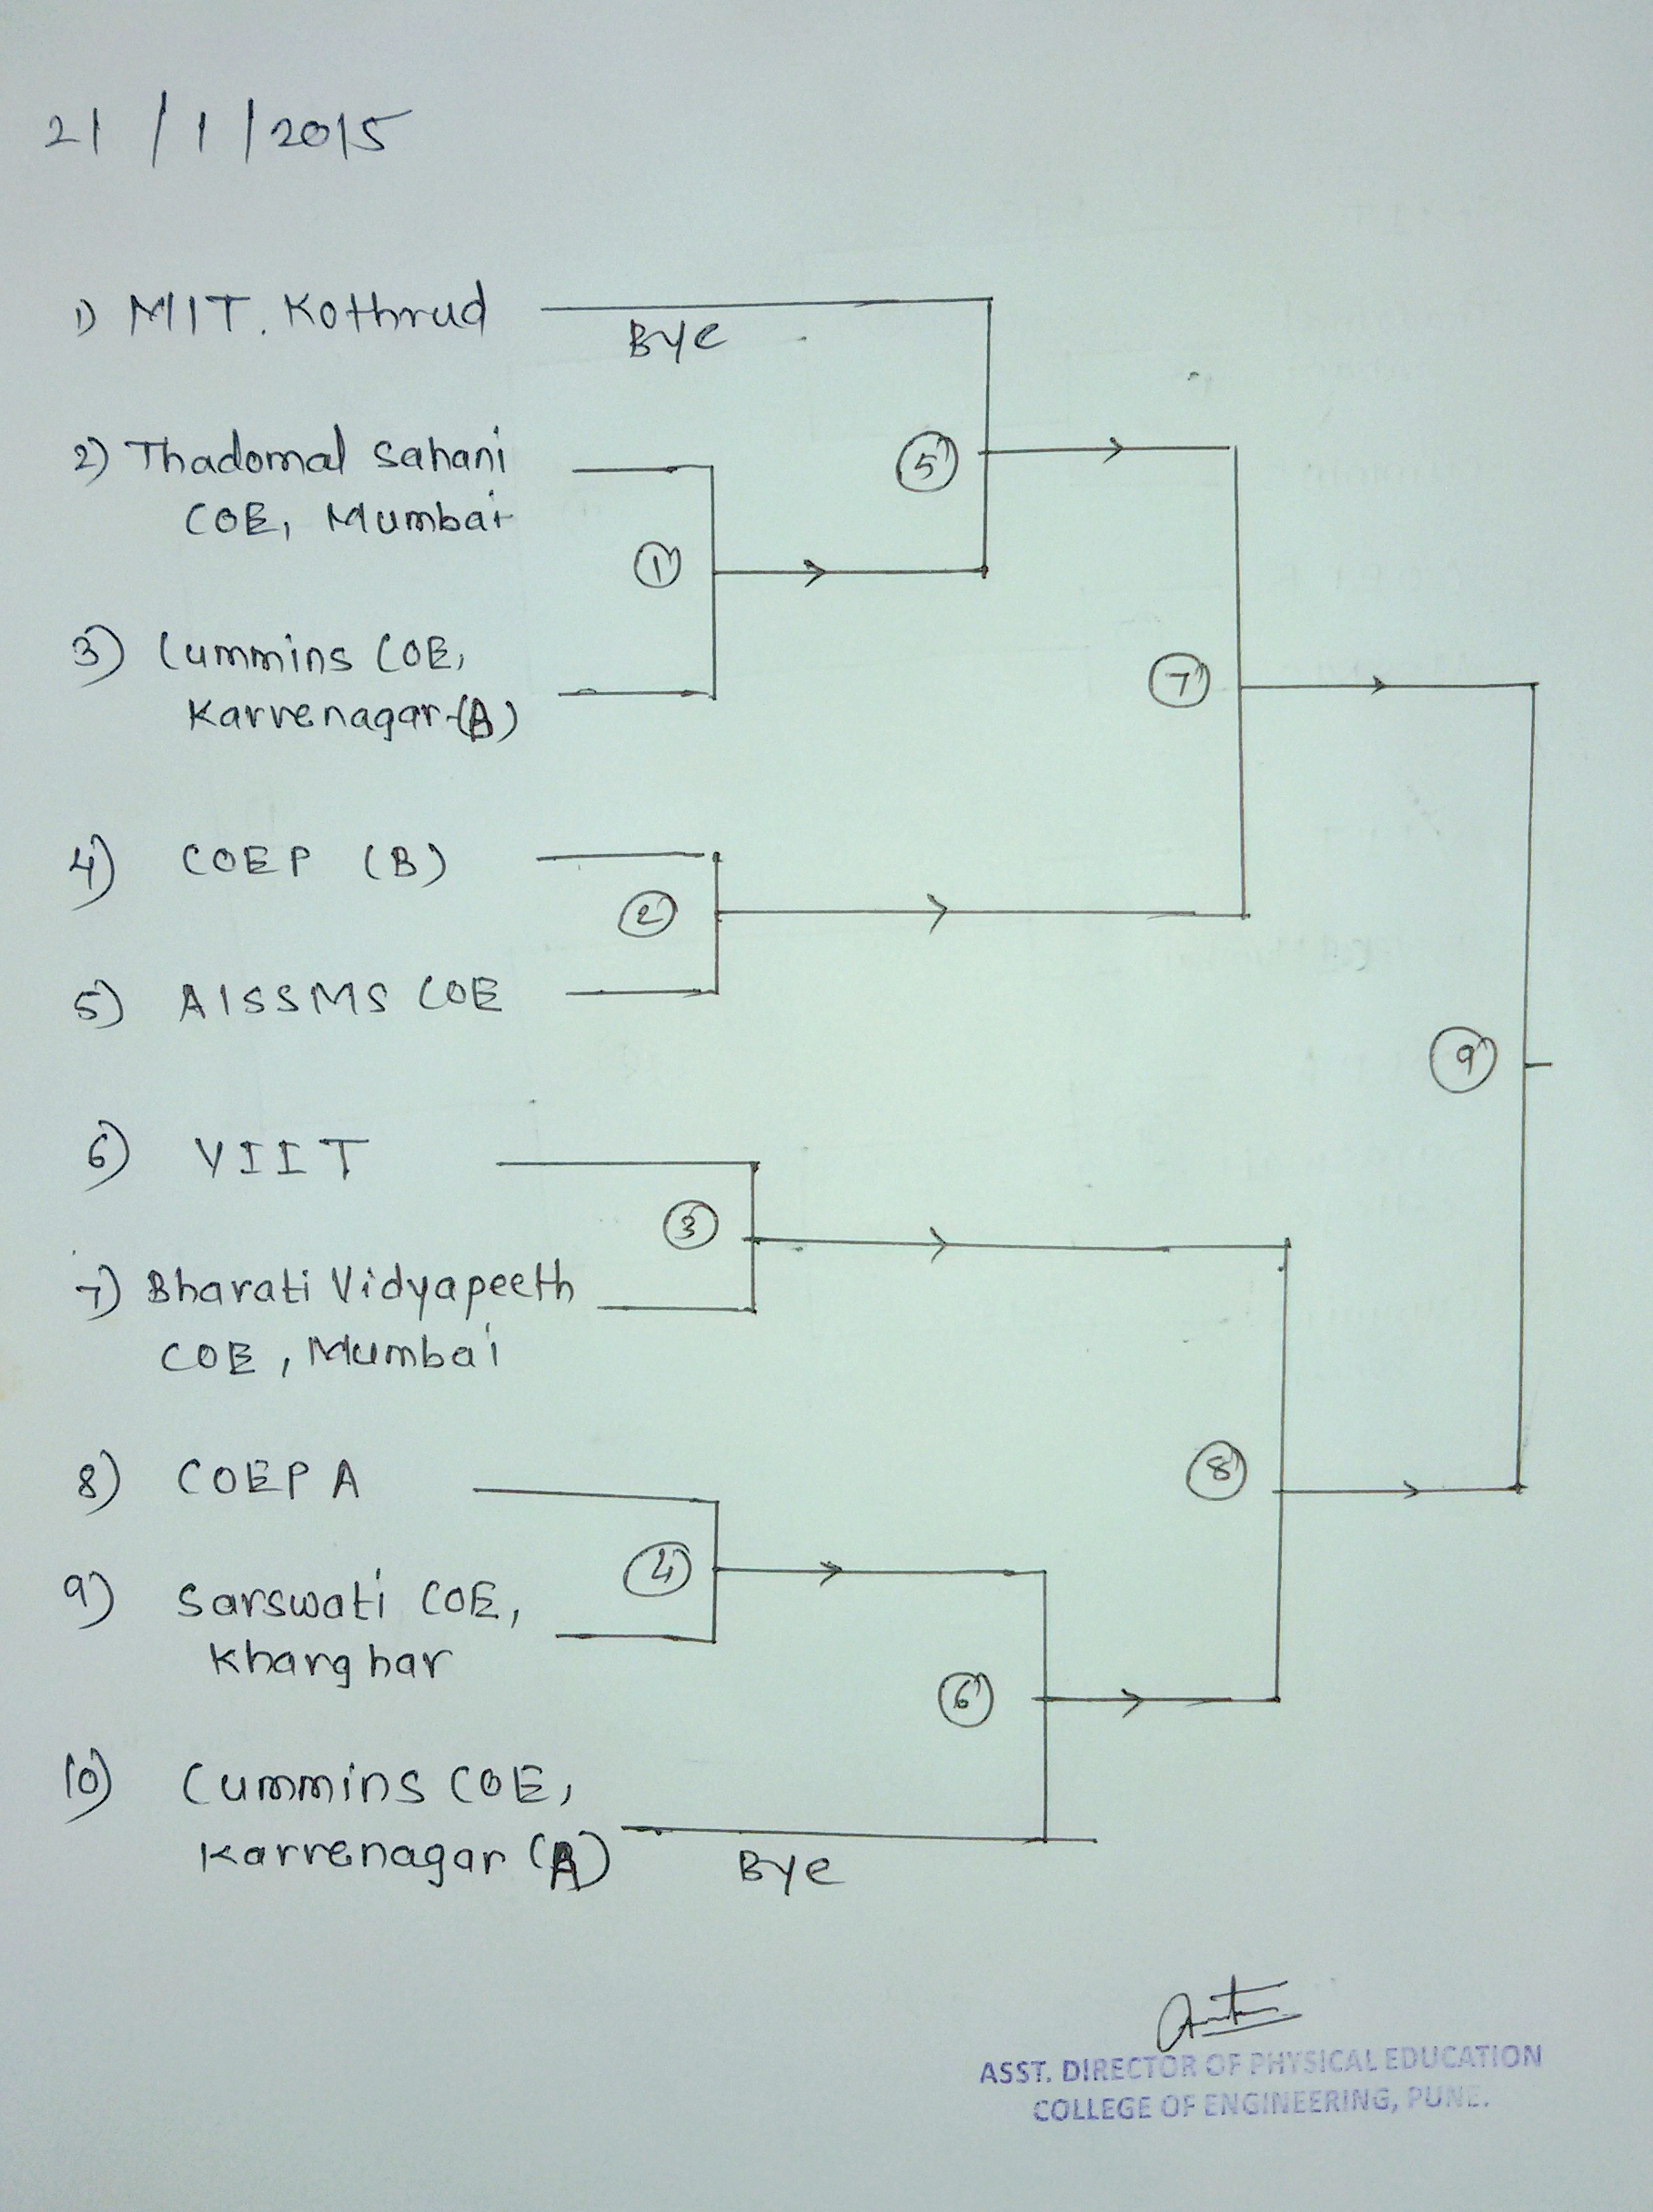 21/1/2015
1) MIT. Kothrud
Bye
2) Thadomal Sahani
COE, Mumbai
5
1
3) Cummins COE,
Karvenagar
7
4) COEP (B)
2
5) AISSMS COE
9
6) VIIT
3
7) Bharati Vidyapeeth
COE, Mumbai
8) COEP A
8
4
9) Sarswati COE,
Kharghar
6
10) Cummins COE,
Karvenagar
Bye
ASST. DIRECTOR OF PHYSICAL EDUCATION
COLLEGE OF ENGINEERING, PUNE.